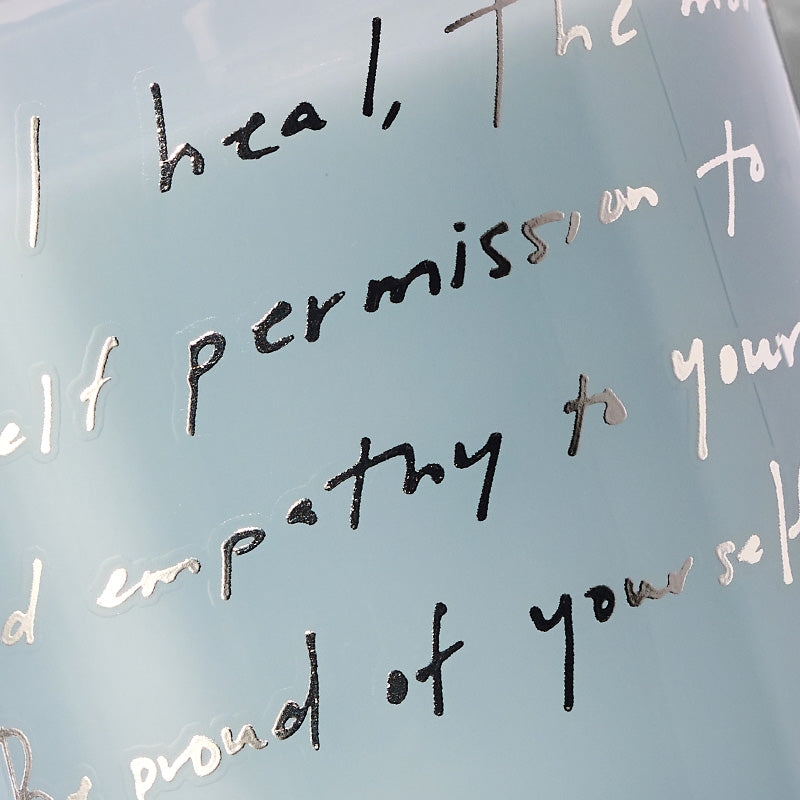 I heal, The
elf permission to
d empathy to your
Be proud of yourself